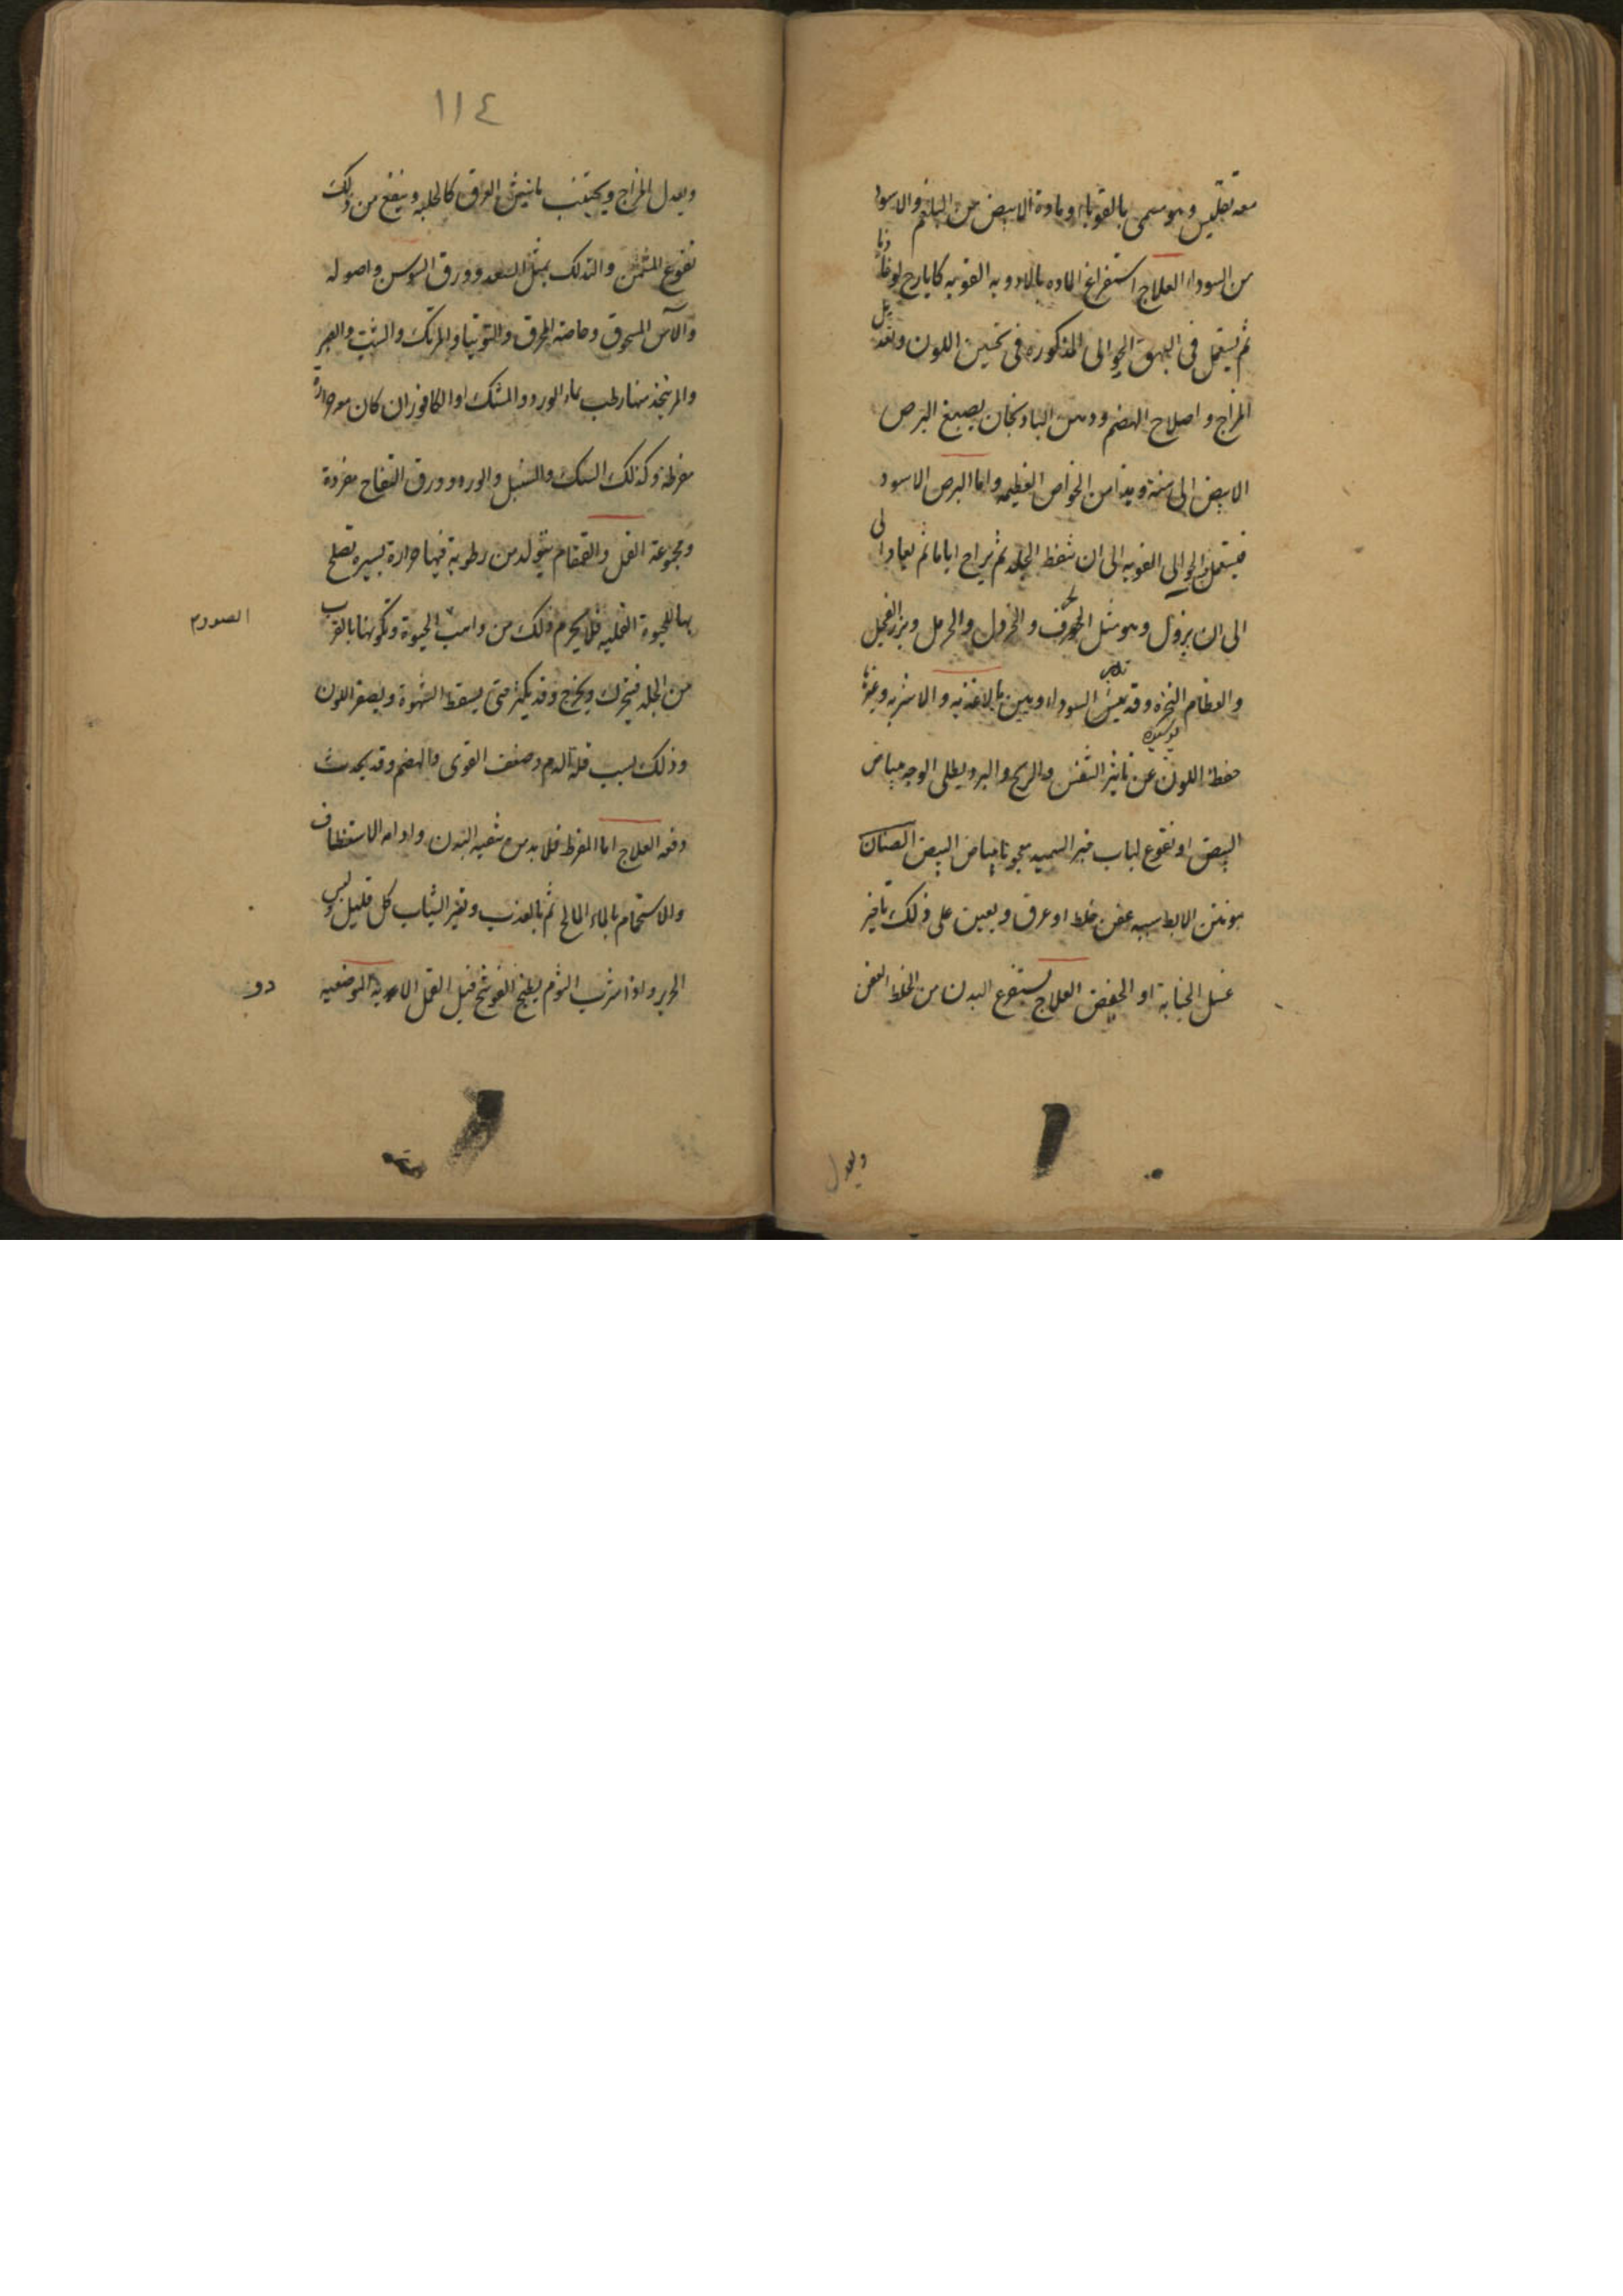 معه تفليس وهو يسمى بالقوباء ومادة الابيض من البلغم والاسود
من السوداء العلاج استفراغ المادة بالادويه القويه كايارج لوغاديا
ثم يستعمل فى البهق الجوالى المذكوره فى تحسين اللون وتعديل
المزاج و اصلاح الهضم ودهن الباذنجان يصبغ البرص
الابيض الى سنة وهذا من الخواص العظيمه واما البرص الاسود
فيستعمل الجوالى القويه الى ان تنفط الجلد ثم يراح اياما ثم يعاود الى
الى ان يزول وهو مثل الحرف و الخردل والحرمل وبزر الفجل
والعظام النخره وقد السوداء وبين بالاغذيه و الاشربه وغيرها
حفظ اللون عن تاثير الشمس والريح والبرد يطلى الوجه ببياض
البيض او نقوع لباب خبز السميد معجونا ببياض البيض الصنان
هو نتن الابط سببه عفن خلط او عرق ويعين على ذلك تاخير
غسل الجنابة او الحيض العلاج يستفرغ البدن من الخلط العفن
ويعدل
١١٤
ويعدل المزاج ويجتنب ما ينتن العرق كالحلبه وينفع من ذلك
نقوع المشمش والتدلك بمثل السعد وورق السوسن واصوله
والآس المسحوق وخاصة المحرق والتوتيا والمرتك والشب والصبر
والمر يتخذ منها رطب بماء الورد والمسك او الكافور ان كان معه حرارة
مفرطة وكذلك السك والسنبل والورد وورق التفاح مفردة
ومجموعة القمل والقمقام يتولد من رطوبة فيها حرارة يسيره تصلح
بها للحيوة القمليه فلا يحرم ذلك من واهب الحيوة وتكونها بالقرب
من الجلد فيتحرك ويخرج وقد يكثر حتى يسقط الشهوة ويصفر اللون
وذلك بسبب قلة الدم وضعف القوى والهضم وقد يحدث
دفعه العلاج اما المفرط فلا بد من تنقيه البدن وادامه الاستنظاف
والاستحمام بالماء المالح ثم بالعذب وتغير الثياب كل قليل ولبس
الحرير واذا شرب الثوم بطبيخ الفوتنج قتل القمل الادويه الموضعيه